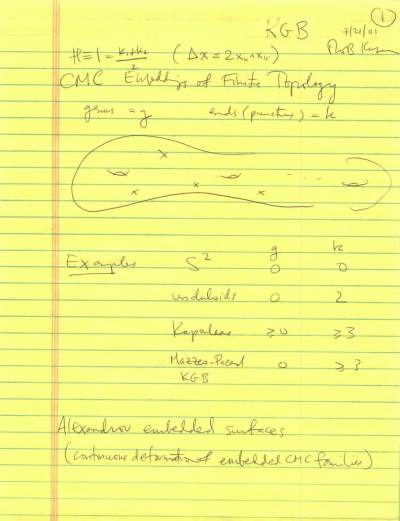 KGB
1
7/21/01
Rob Kusner
H≡1=(k₁+k₂)/2 (Δx=2xᵤ∧xᵥ)
CMC Embeddings of Finite Topology
genus = g ends (punctures) = k
g k
Examples S² 0 0
unduloids 0 2
Kapouleas ≥0 ≥3
Mazzeo-Pacard 0 ≥3
KGB
Alexandrov embedded surfaces
(continuous deformation of embedded CMC families)